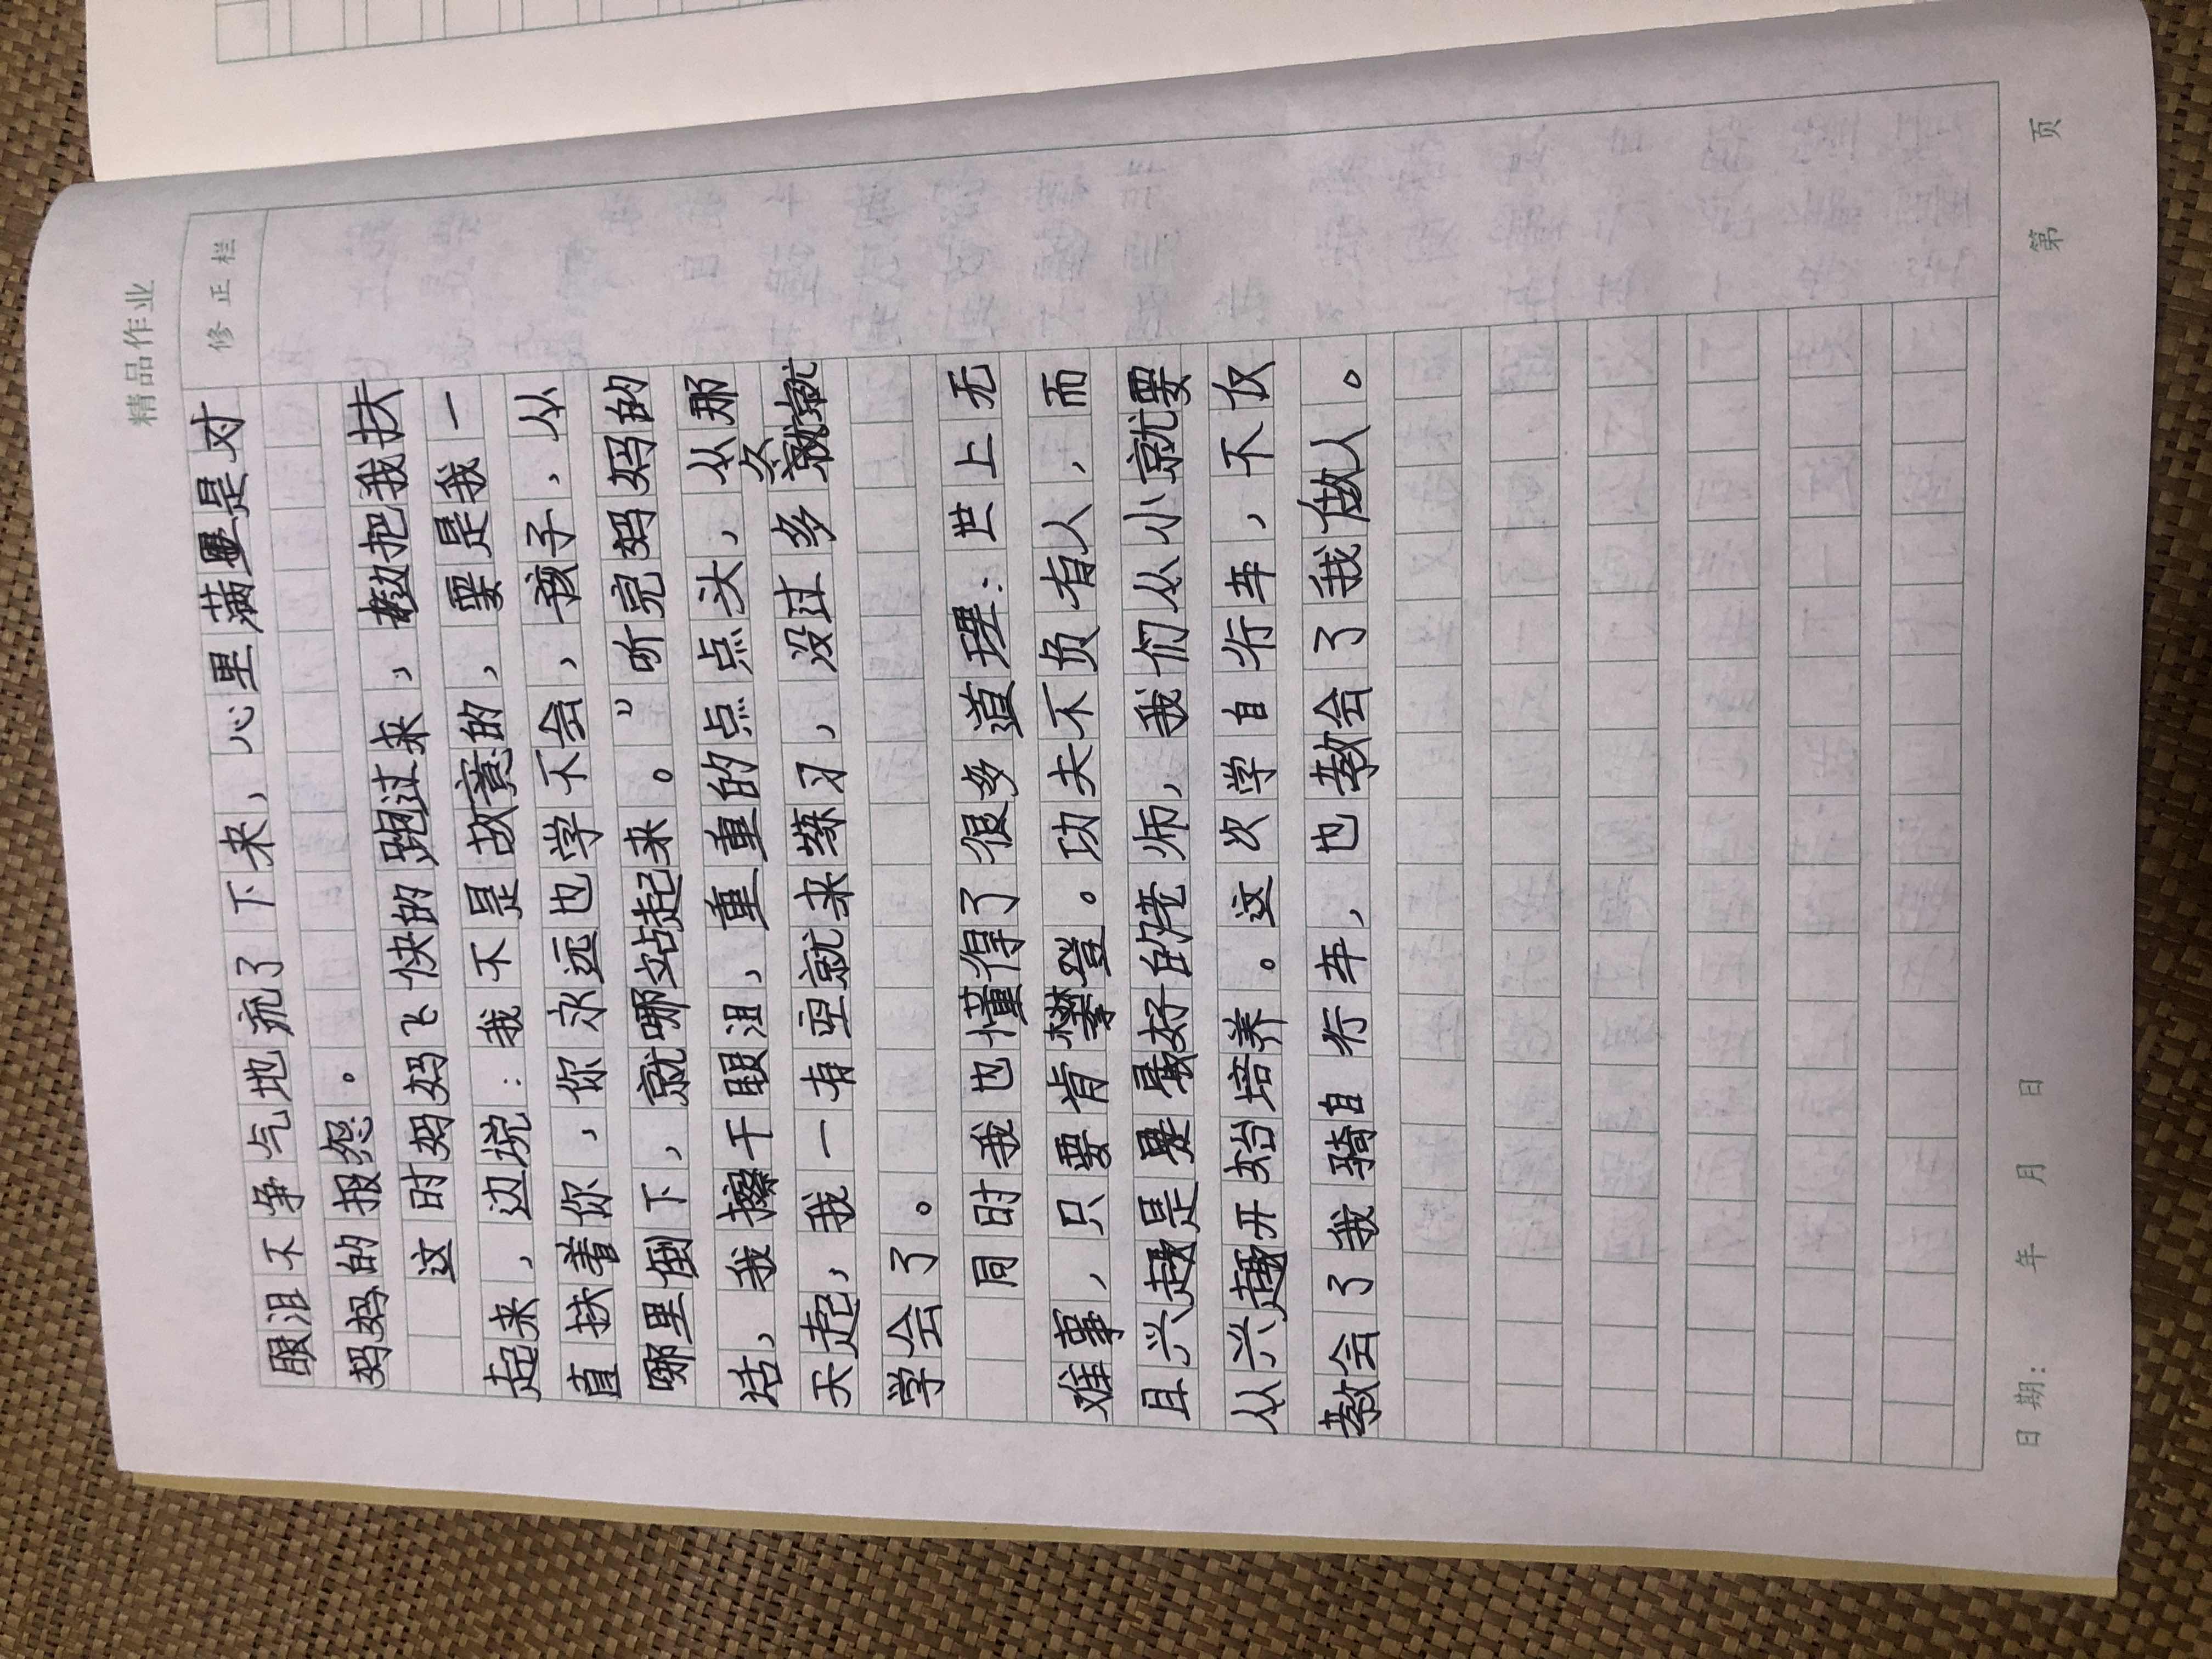 精品作业
修正栏
眼泪不争气地流了下来，心里满是对
妈妈的报怨。
这时妈妈飞快的跑过来，边把我扶
起来，边说：我不是故意的，要是我一
直扶着你，你永远也学不会，孩子，从
哪里倒下，就哪站起来。”听完妈妈的
话，我擦干眼泪，重重的点点头，从那
天起，我一有空就来练习，没过多久就
学会了。
同时我也懂得了很多道理：世上无
难事，只要肯攀登。功夫不负有人，而
且兴趣是最好的老师，我们从小就要
从兴趣开始培养。这次学自行车，不仅
教会了我骑自行车，也教会了我做人。
日期： 年 月 日 第 页